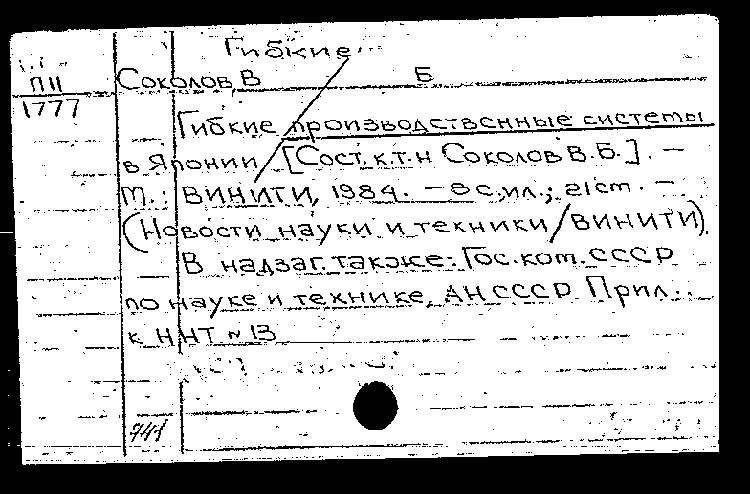 Гибкие...
П II
Соколов, В Б
1777
Гибкие производственные системы
в Японии / [Сост. к.т.н Соколов В.Б.]. –
М.: ВИНИТИ, 1984. – 8 с, ил.; 21 см. –
(Новости науки и техники / ВИНИТИ)
В надзаг. также: Гос. ком. СССР
по науке и технике, АН СССР. Прил..
к ННТ № 13
941